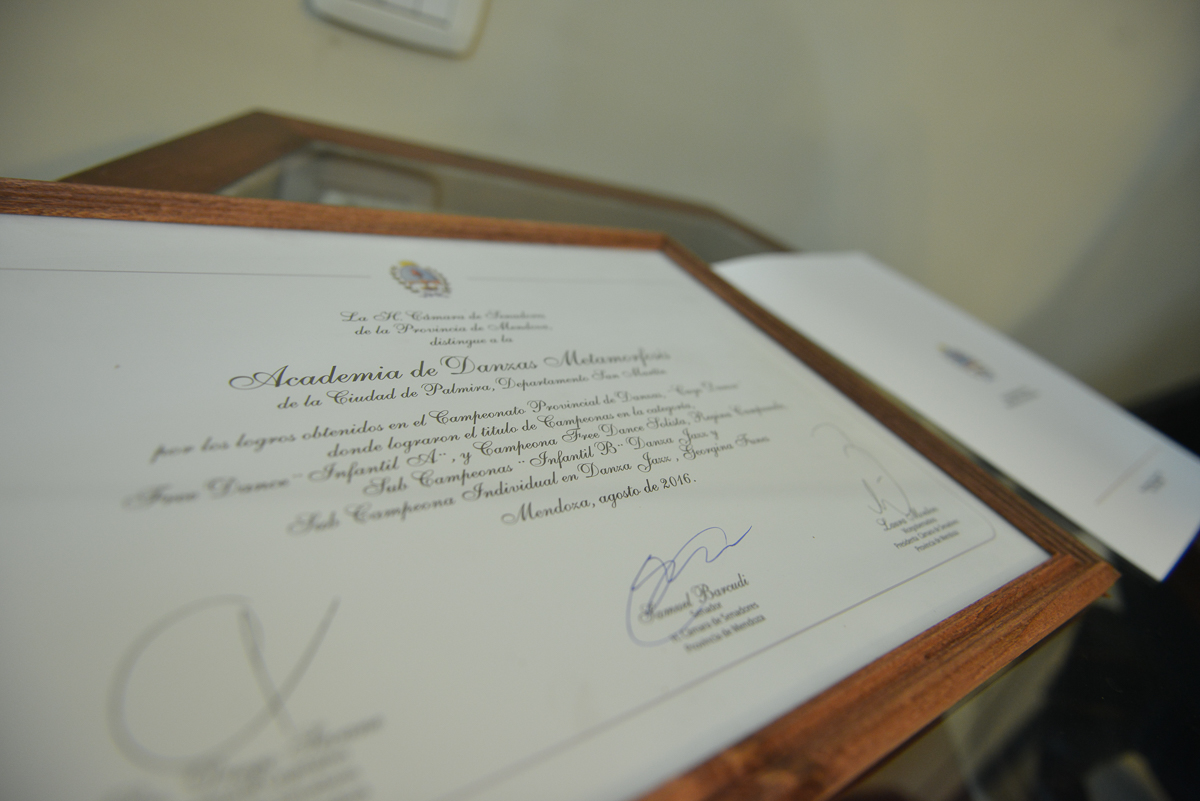 La H. Cámara de Senadores
de la Provincia de Mendoza,
distingue a la
Academia de Danzas Metamorfosis
de la Ciudad de Palmira, Departamento San Martín
por los logros obtenidos en el Campeonato Provincial de Danzas, Dance
donde lograron el titulo de Campeonas en la categoría,
Dance¨ Infantil A¨, y Campeona Free Dance Solista, Regina
Sub Campeonas ¨Infantil B¨ Danza Jazz y
Sub Campeona Individual en Danza Jazz, Georgina
Mendoza, agosto de 2016.
Samuel Barcudi
Senador
H. Cámara de Senadores
Provincia de Mendoza
Laura
Presidenta Cámara de Senadores
Provincia de Mendoza